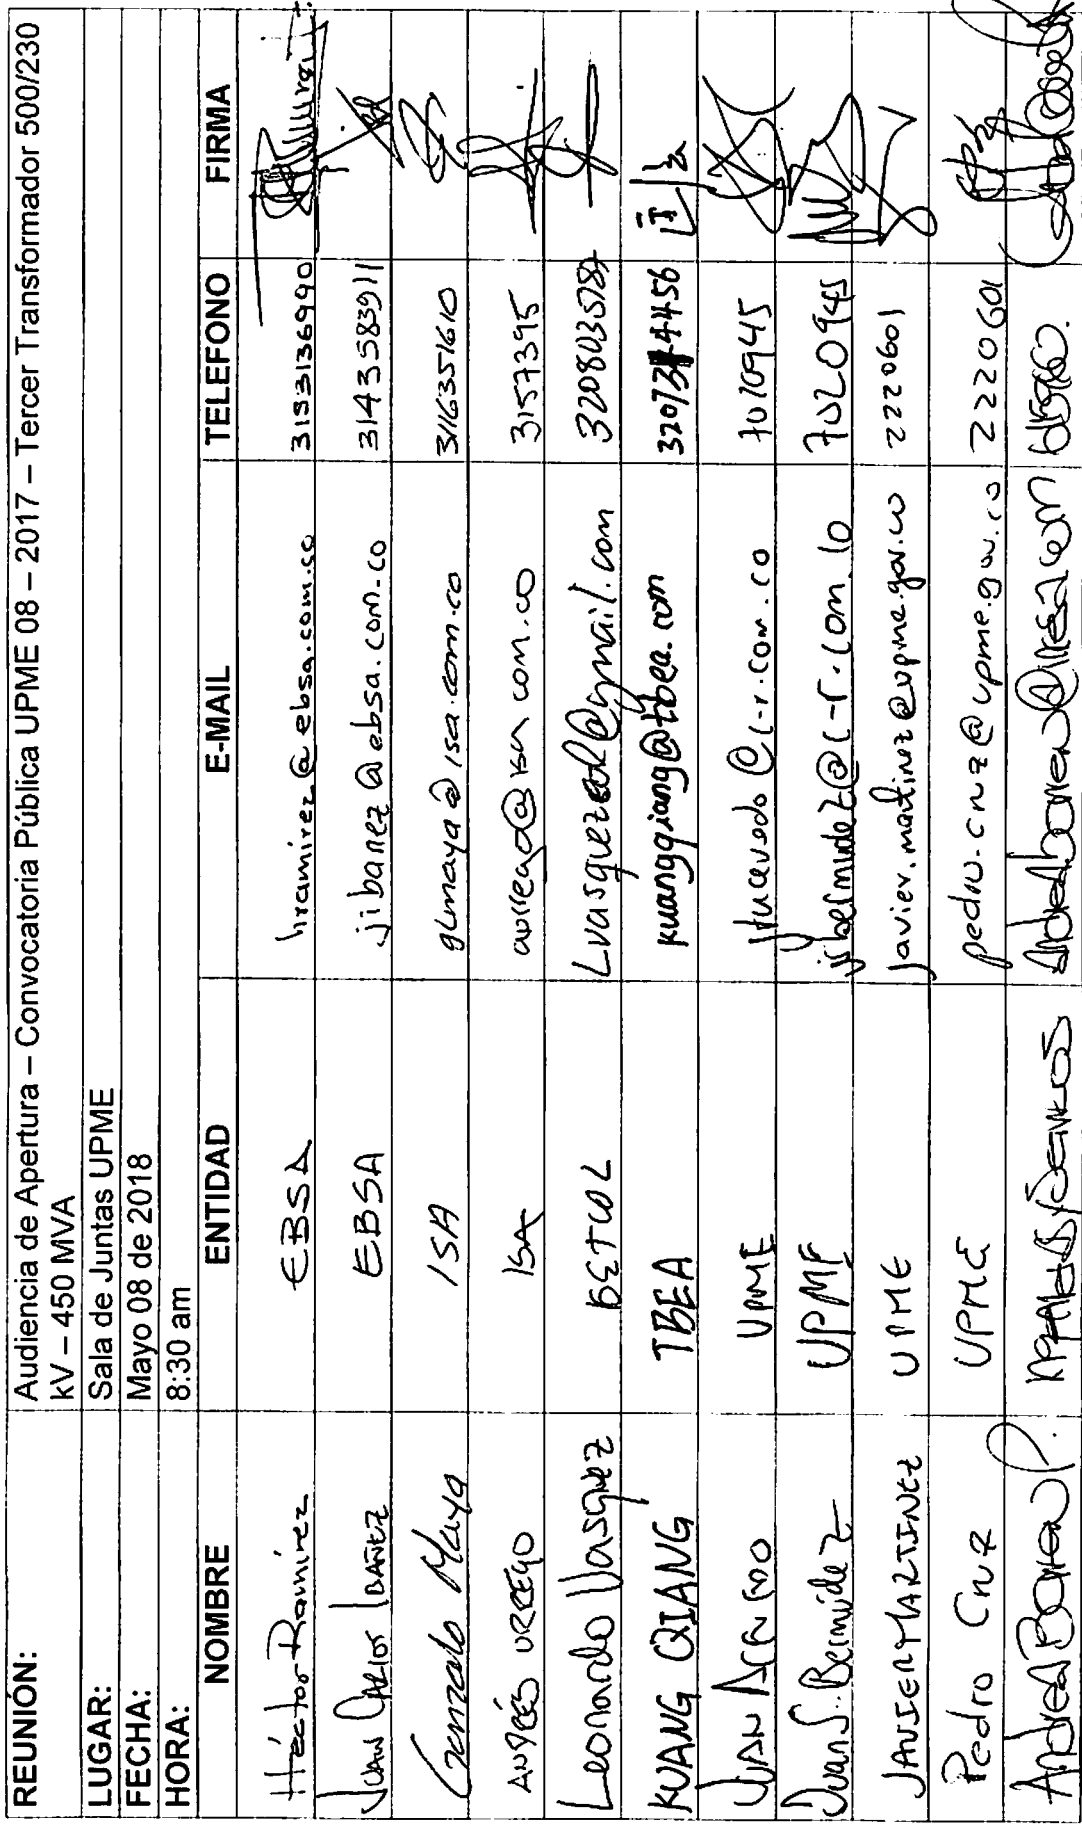 REUNIÓN: Audiencia de Apertura – Convocatoria Pública UPME 08 – 2017 – Tercer Transformador 500/230
kV – 450 MVA
LUGAR: Sala de Juntas UPME
FECHA: Mayo 08 de 2018
HORA: 8:30 am
NOMBRE ENTIDAD E-MAIL TELEFONO FIRMA
Héctor Ramírez EBSA hramirez@ebsa.com.co 3153136990
Juan Carlos Ibañez EBSA jibanez@ebsa.com.co 3143583911
Gonzalo Maya ISA glmaya@isa.com.co 3116351610
ANDRÉS URREGO ISA aurrego@isa.com.co 3157395
Leonardo Vasquez BETCOL 3208035787
KUANG QIANG TBEA kuangqiang@tbea.com
JUAN ACEVEDO UPME 7020945
Juan S. Bermúdez UPME 7020945
JAVIER MARTINEZ UPME javier.martinez@upme.gov.co 2220601
Pedro Cruz UPME pedro.cruz@upme.gov.co 2220601
Andrea P.